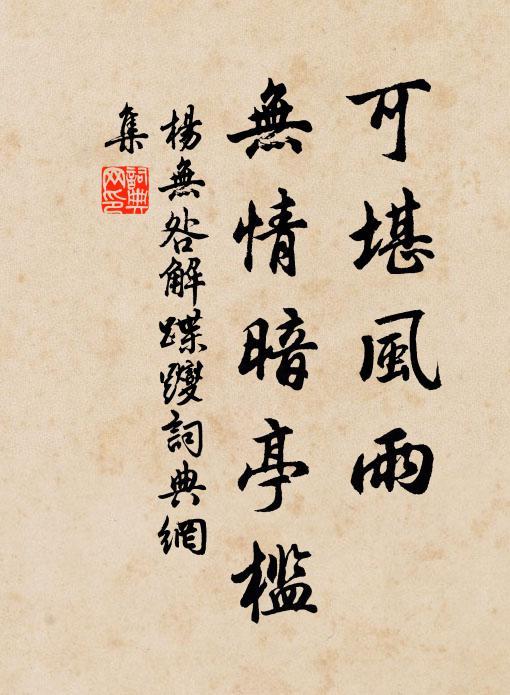 可堪風雨
無情暗亭檻
楊無咎解蹀躞詞典網
集
詞典
网印